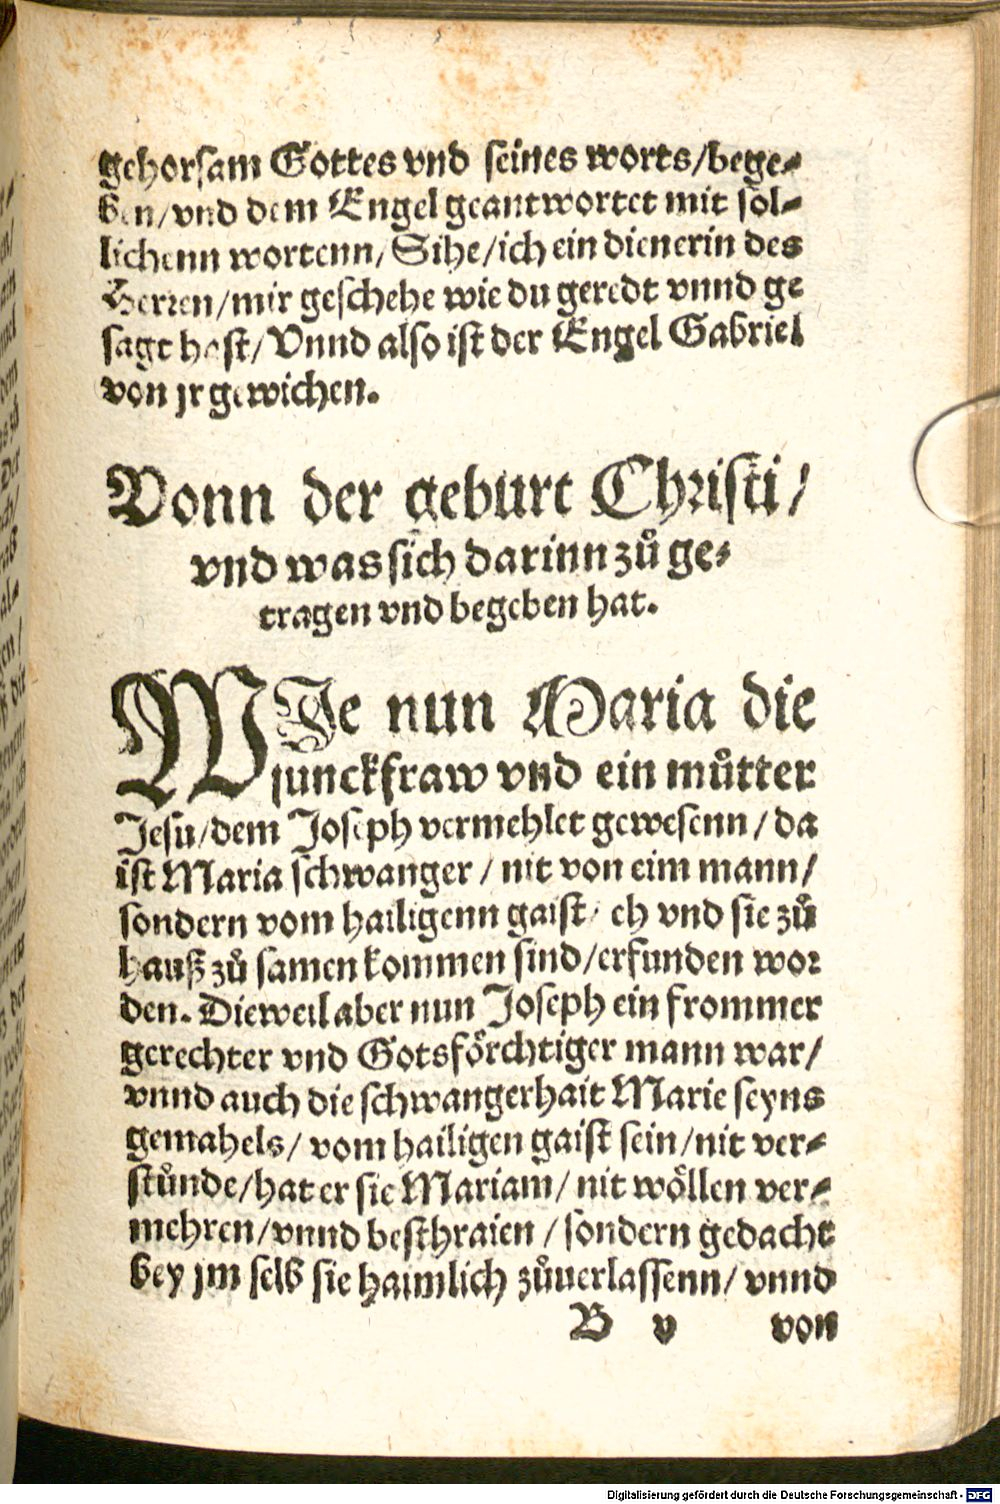 gehorsam Gottes vnd seines worts/bege-
ben/vnd dem Engel geantwortet mit söl-
lichenn wortenn/Sihe/ich ein dienerin des
Herren/mir geschehe wie du geredt vnnd ge
sagt hast/Vnnd also ist der Engel Gabriel
von jr gewichen.
Vonn der geburt Christi/
vnd was sich darinn zů ge-
tragen vnd begeben hat.
WJe nun Maria die
junckfraw vnd ein můtter
Jesu/dem Joseph vermehlet gewesenn/da
ist Maria schwanger/nit von eim mann/
sondern vom hailigenn gaist/eh vnd sie zů
hauß zů samen kommen sind/erfunden wor
den. Dieweil aber nun Joseph ein frommer
gerechter vnd Gotsförchtiger mann war/
vnnd auch die schwangerhait Marie seyns
gemahels/vom hailigen gaist sein/nit ver-
stůnde/hat er sie Mariam/nit wöllen ver-
mehren/vnnd besthraien/sondern gedacht
bey jm selb sie haimlich zůuerlassenn/vnnd
B v von
Digitalisierung gefördert durch die Deutsche Forschungsgemeinschaft - DFG